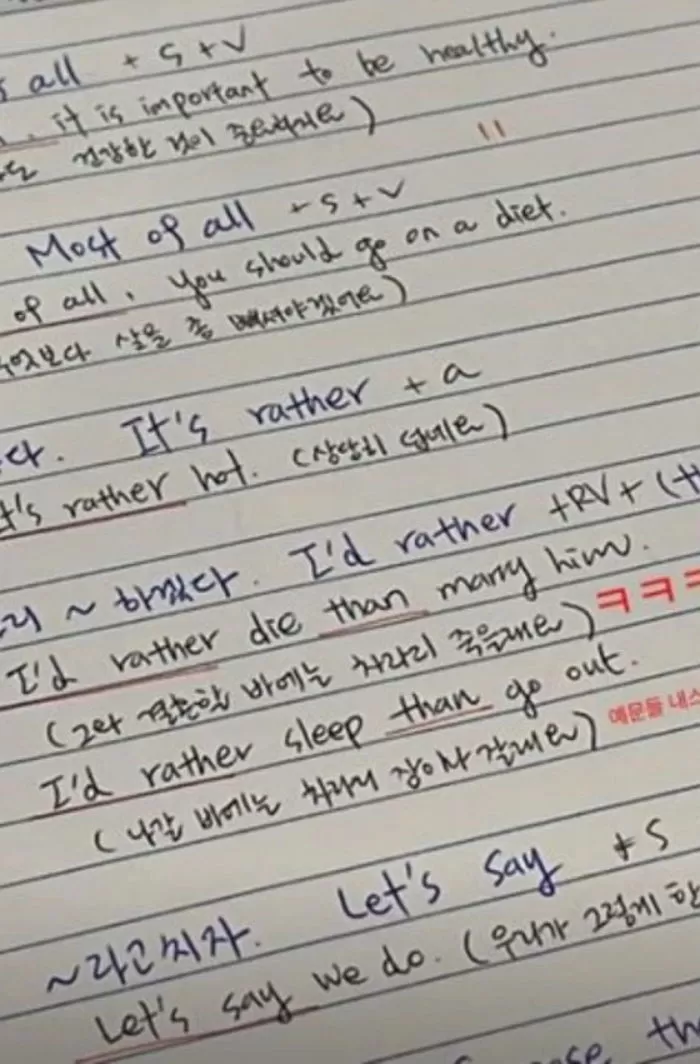 all + S + V
it is important to be healthy.
건강한 것이 중요하지요)
Most of all + S + V
of all, you should go on a diet.
살을 좀 빼셔야겠어요)
It's rather + a
t's rather hot. (상당히 덥네요)
~ 하겠다. I'd rather +RV+ (th
I'd rather die than marry him.
(그와 결혼할 바에는 차라리 죽을래요) ㅋㅋㅋ
I'd rather sleep than go out.
(나갈 바에는 차라리 잠이나 잘래요) 예문들 내스
~라고치자. Let's say + S
Let's say we do. (우리가 그렇게 한